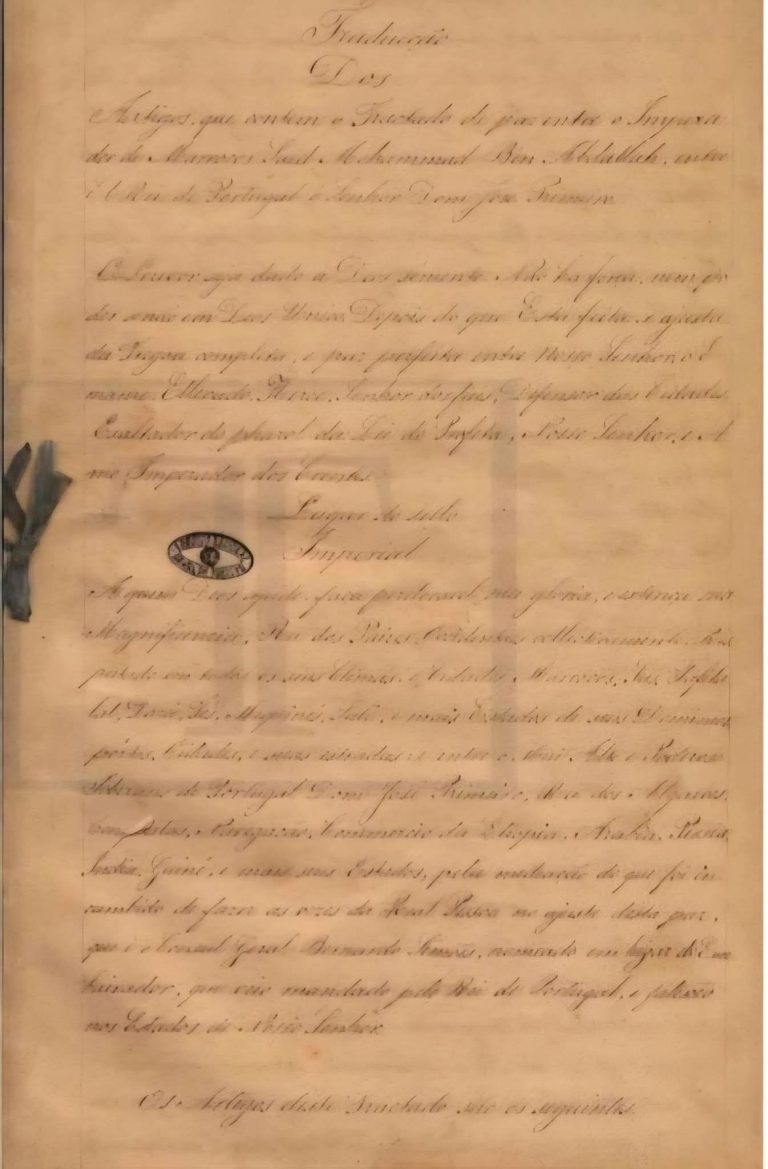 Traducção
Dos
Artigos, que contem o Tractado de paz entre o Impera
dor de Marrocos Saed Mohammad Ben Abdallah, entre
ElRei de Portugal o Senhor Dom José Primeiro.
O Louvor seja dado a Deos sómente. Não ha força, nem po
der senão em Deos Unico. Depois do que Está feita, e ajusta
da Tregoa completa, e paz perfeita entre Nosso Senhor, o I
mame, Ellevado, Senhor, Defensor das Cidades,
Exaltador do pharol da Lei do Profeta, Nosso Senhor, e A
mo Imperador dos Crentes.
Lugar do sello
Imperial
A quem Deos ajude, faça perduravel sua gloria, e extença sua
Magnificencia, Rei dos Paizes Occidentaes collectivamente. Res
peitado em todos os seus Climas, e Cidades Marrocos, Fes, Tafila
let, Dará, Sus, Mequinés, Salé, e mais Estados de seus Dominios,
portos, Cidades, e suas estradas: e entre o Mui Alto e Poderoso
Soberano de Portugal Dom José Primeiro, Rei dos Algarves,
Conquistas, Navegação, Commercio da Etiopia, Arabia, Persia,
India, Guiné, e mais seus Estados, pela mediação de que foi in
cumbido de fazer as vezes da Real Pessoa no ajuste desta paz,
que é o Consul Geral Bernardo Simoẽs, nomeado em lugar de Em
baixador, que veio mandado pelo Rei de Portugal, e
nos Estados de Nosso Senhor.
Os Artigos deste Tractado são os seguintes.